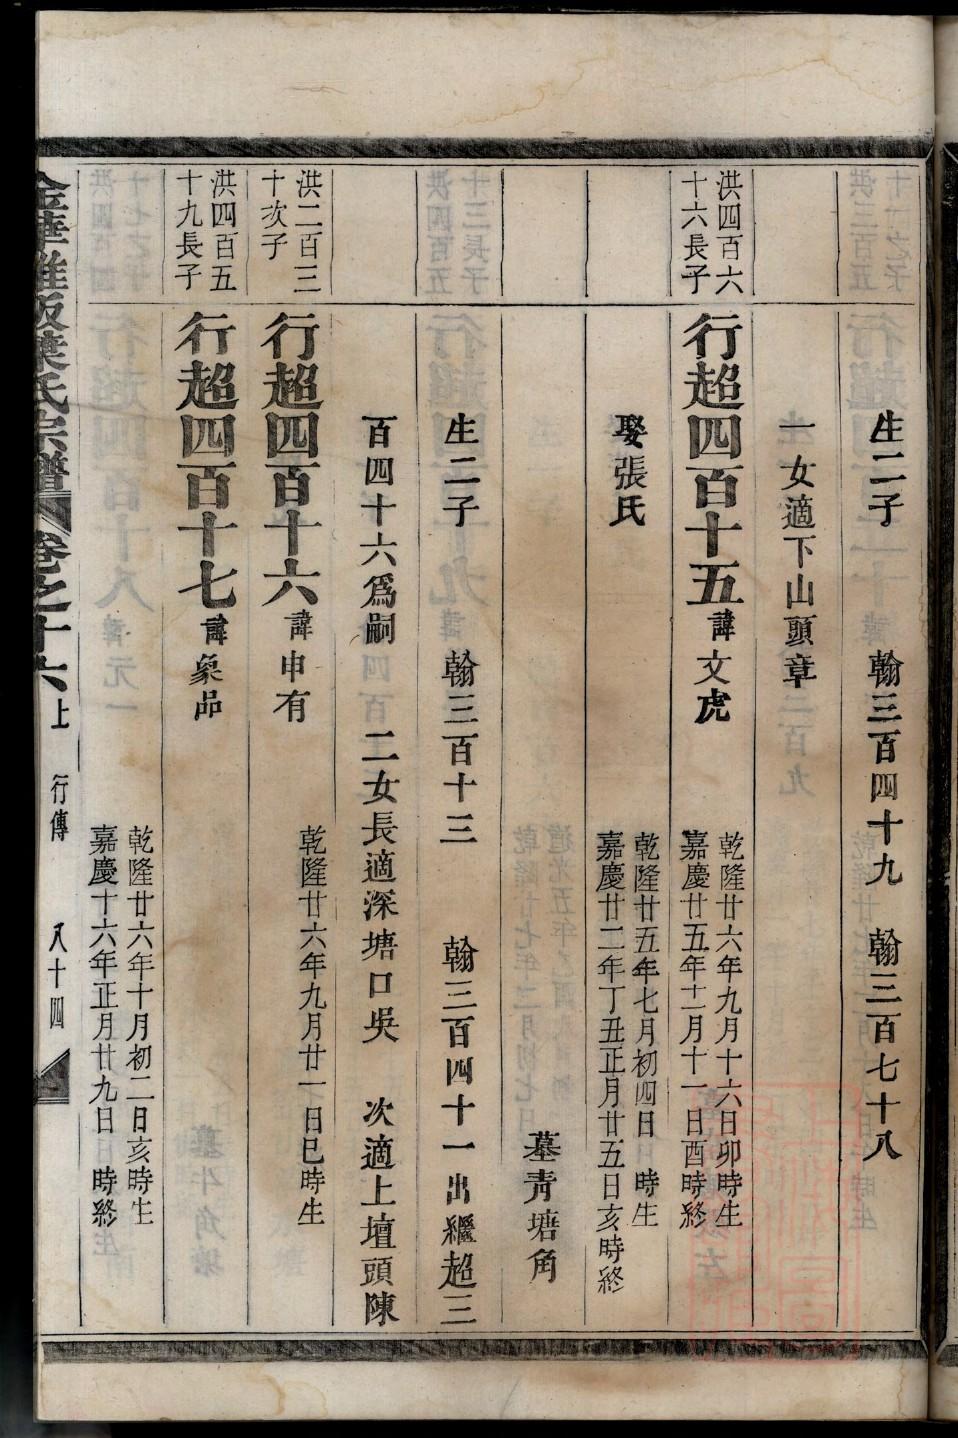 生二子 翰三百四十九 翰三百七十八
一女適下山頭章
洪四百六
十六長子
行超四百十五 諱文虎
乾隆廿六年九月十六日卯時生
嘉慶廿五年十二月十一日酉時終
娶張氏
乾隆廿五年七月初四日 時生
嘉慶廿二年丁丑正月廿五日亥時終
墓青塘角
生二子 翰三百十三 翰三百四十一出繼超三
百四十六爲嗣 二女長適深塘口吳 次適上壇頭陳
洪二百三
十次子
行超四百十六 諱申有
乾隆廿六年九月廿一日巳時生
洪四百五
十九長子
行超四百十七 諱象品
乾隆廿六年十月初二日亥時生
嘉慶十六年正月廿九日 時終
葉氏宗譜 卷之十六上 行傳 八十四